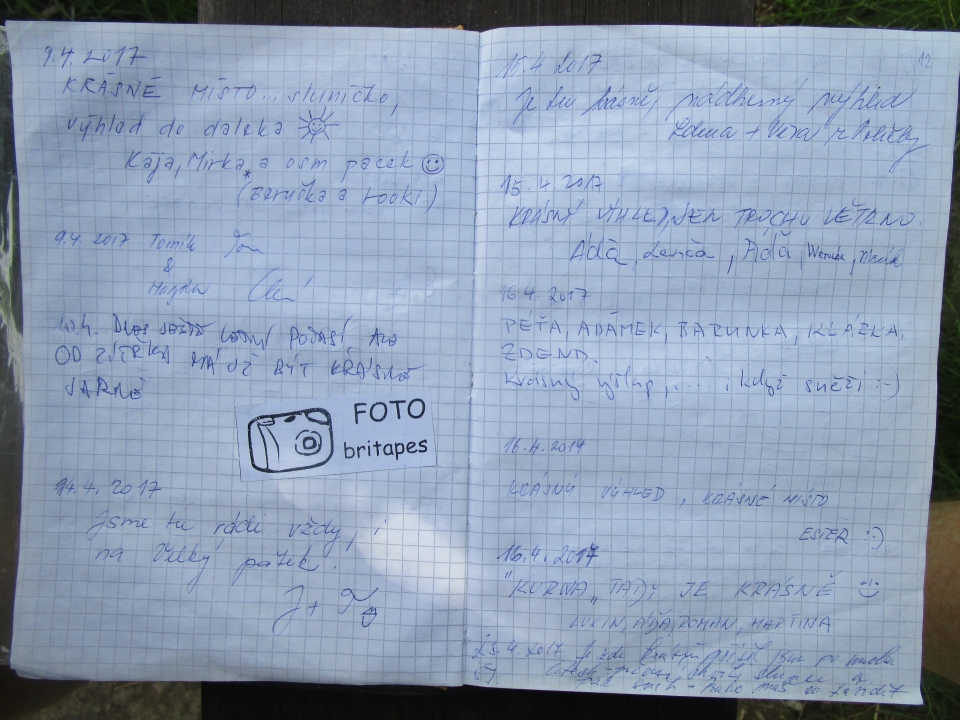 9.4.2017
KRÁSNÉ MÍSTO... sluníčko,
výhled do daleka
Kája, Mirka, a osm pacek
(Baruška a Rocki)
9.4. 2017 Tomík
&
Magda
10.4. DNES JEŠTĚ LETNÍ POČASÍ, ALE
OD ZÍTŘKA MÁ UŽ BÝT KRÁSNĚ
JARNĚ
FOTO
britapes
14.4. 2017
Jsme tu rádi vždy, i
na Velký pátek.
J +
12
15.4. 2017
Je tu krásně, nádherný výhled
+ Věra z Poličky
15.4. 2017
KRÁSNÝ VÝHLED, JEN TROCHU VĚTRNO.
Áďa, , Áďa,
16.4. 2017
PÉŤA, ADÁMEK, BARUNKA, KLÁRKA,
ZDEND.
Krásný výšlap,... i když sněží :-)
16.4.2017
KRÁSNÝ VÝHLED, KRÁSNÉ MÍSTO
ESTER :-)
16.4.2017
"KURWA„ TADY JE KRÁSNĚ
ROMAN, MARTINA
23.4.2017 Je zde